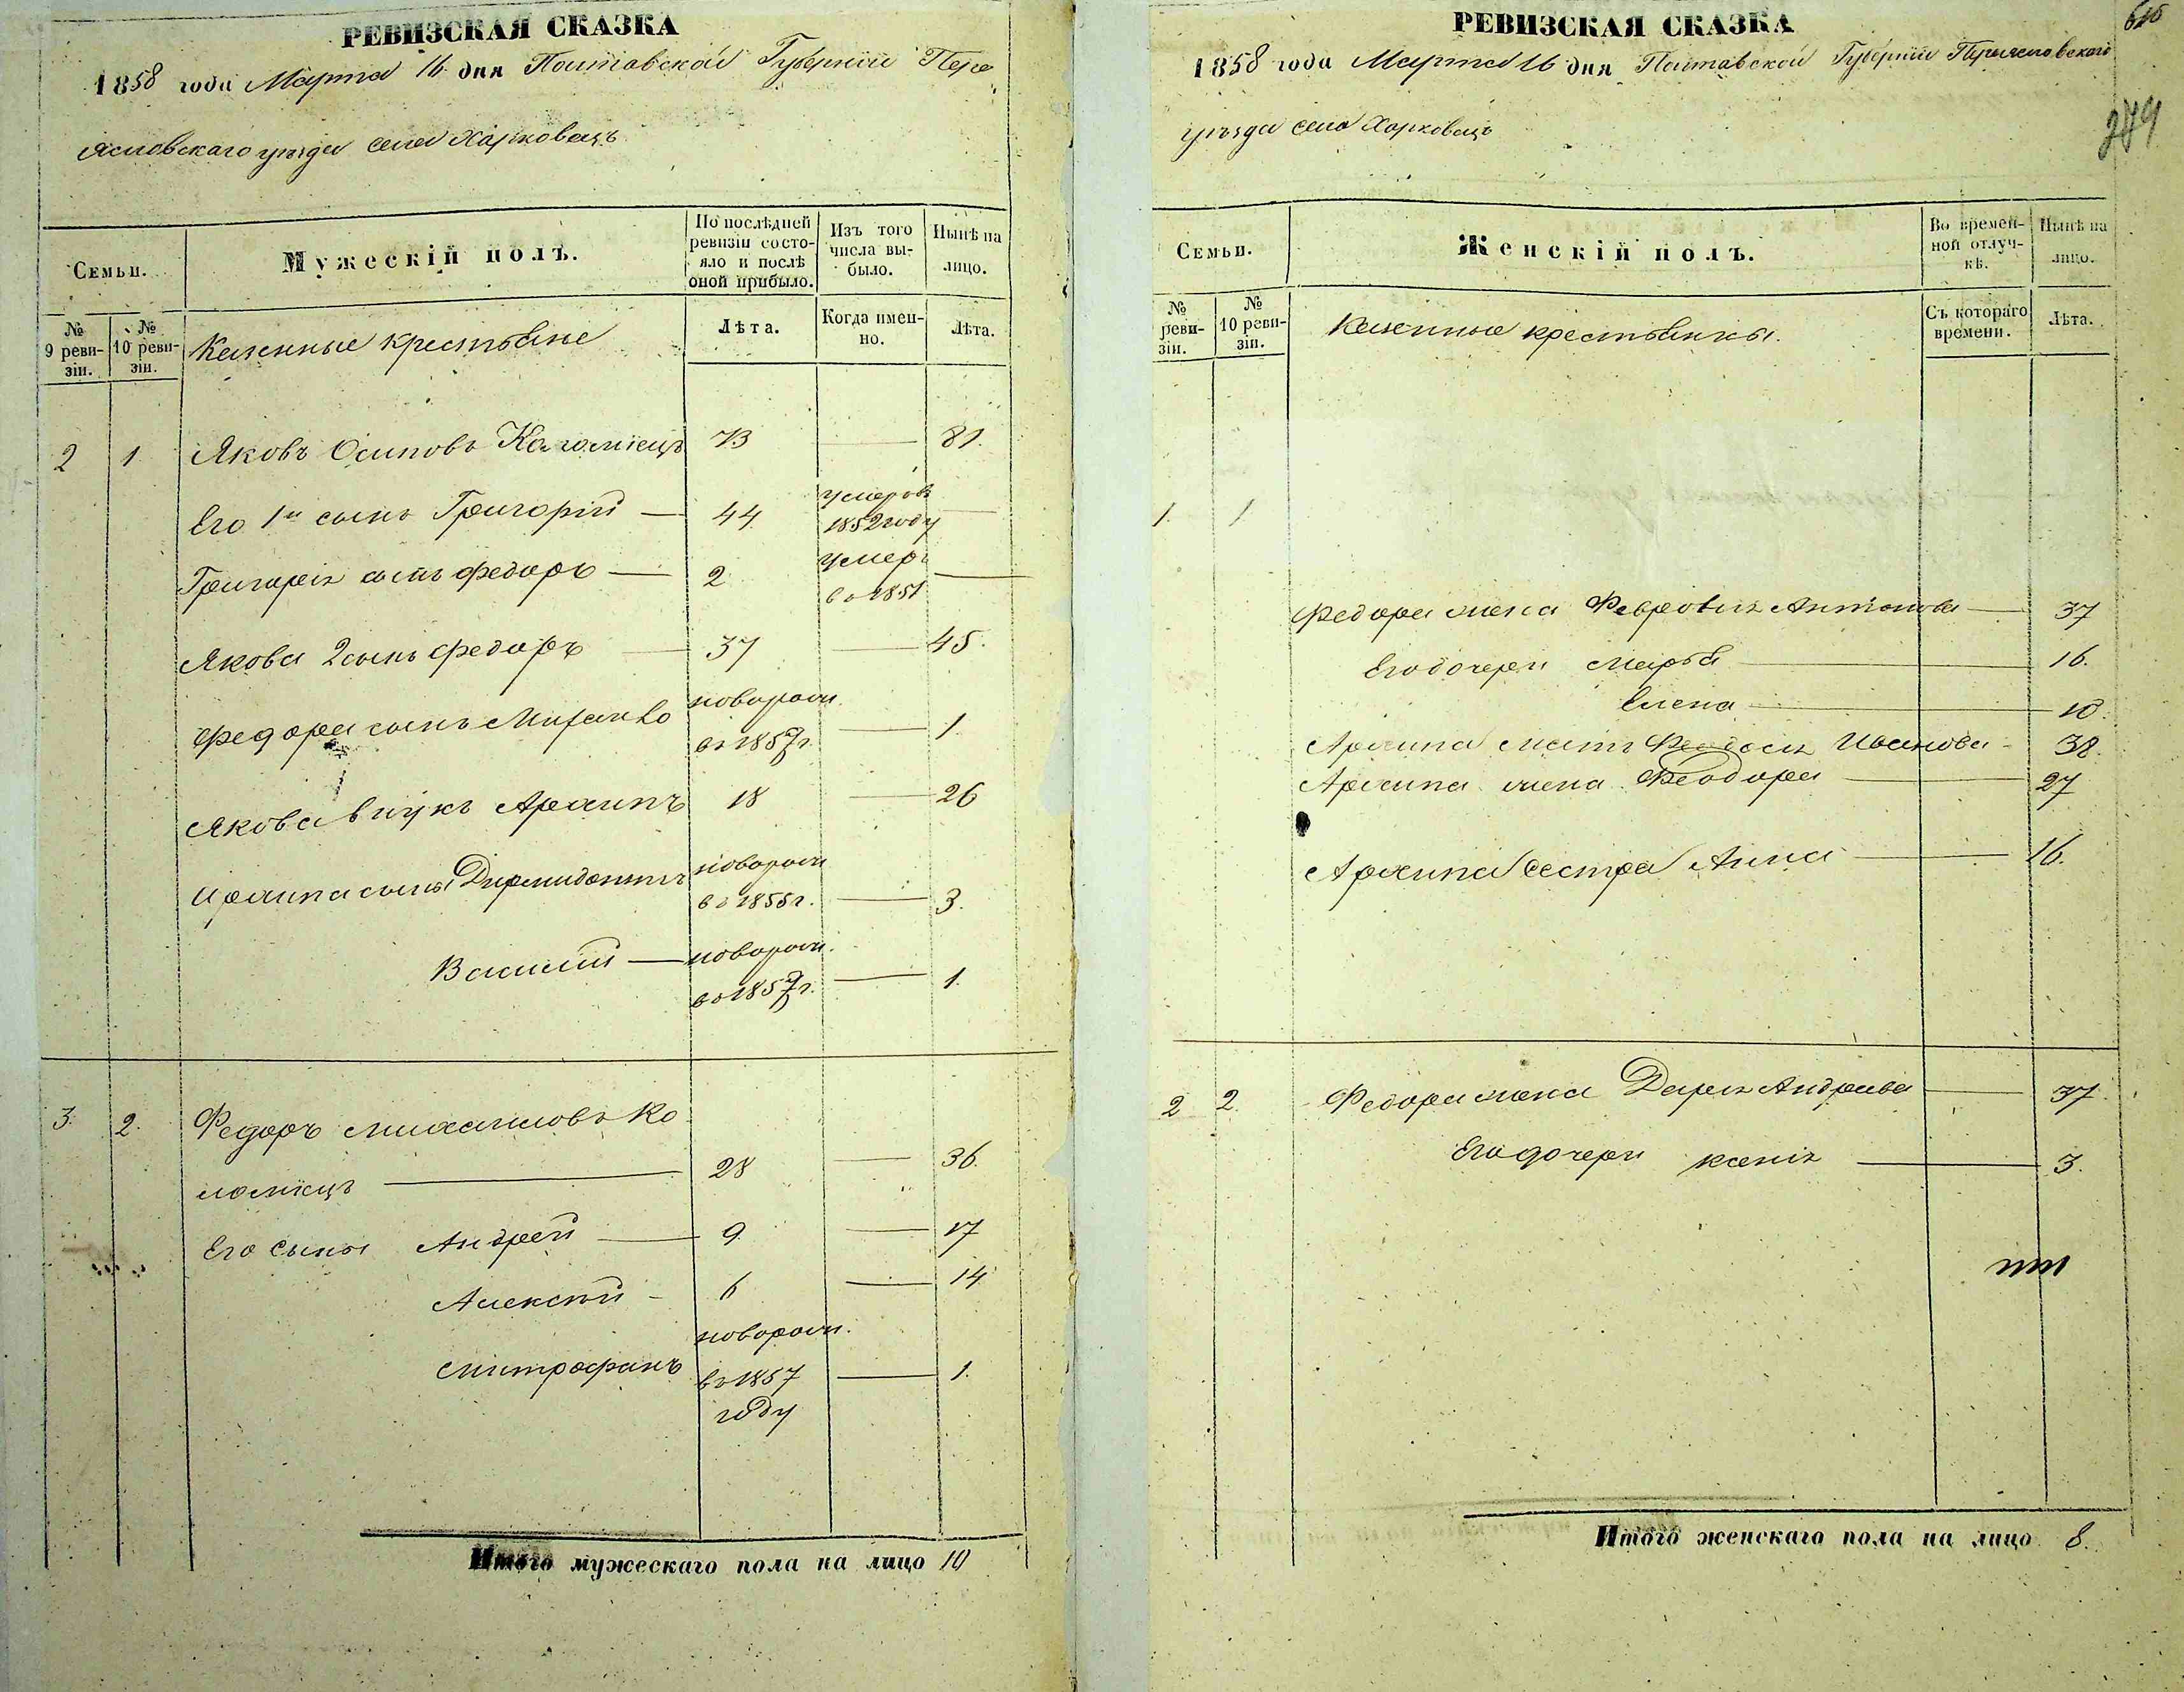 РЕВИЗСКАЯ СКАЗКА
1858 года Марта 16 дня Полтавской Губернии Пере
яславского уѣзда села Харковецъ
Семьи.
Мужескій полъ.
По послѣдней ревизіи состояло и послѣ оной прибыло.
Изъ того числа выбыло.
Нынѣ на лицо.
№ 9 ревизіи.
№ 10 ревизіи.
Казенные крестьяне
Лѣта.
Когда именно.
Лѣта.
2 1 Яковъ Осиповъ Коломіецъ 73 — 81.
Его 1й сынъ Григорій — 44 умеръ въ 1852 году —
Григорія сынъ Федоръ — 2 умеръ въ 1851 —
Якова 2 сынъ Федоръ — 37 — 45.
Федора сынъ новорож. въ 1857 г. — 1.
Якова внукъ Архипъ 18 — 26
Архипа сыны новорож. въ 1855 г. — 3.
Василій — новорож. въ 1857 г. — 1.
3. 2. Федоръ Михайловъ Ко
ломіецъ — 28 — 36.
Его сыны Андрей — 9. — 17
Алексѣй — 6 — 14
Митрофанъ новорож. въ 1857 году — 1.
Итого мужескаго пола на лицо 10
РЕВИЗСКАЯ СКАЗКА
1858 года Марта 16 дня Полтавской Губернии Переяславского
уѣзда села Харковецъ
279
Семьи.
Женскій полъ.
Во временной отлучкѣ.
Нынѣ на лицо.
№ ревизіи.
№ 10 ревизіи.
Казенные крестьянки.
Съ котораго времени.
Лѣта.
1. 1
Федора жена Февронія Антонова — 37
Его дочери Марья — 16.
Елена — 10.
Архипа мать Феодосія Иванова — 38.
Архипа жена Феодора — 27
Архипа сестра Анна — 16.
2 2. Федора жена Дарія Андреева — 37.
Его дочери Ксенія — 3.
Итого женскаго пола на лицо 8.